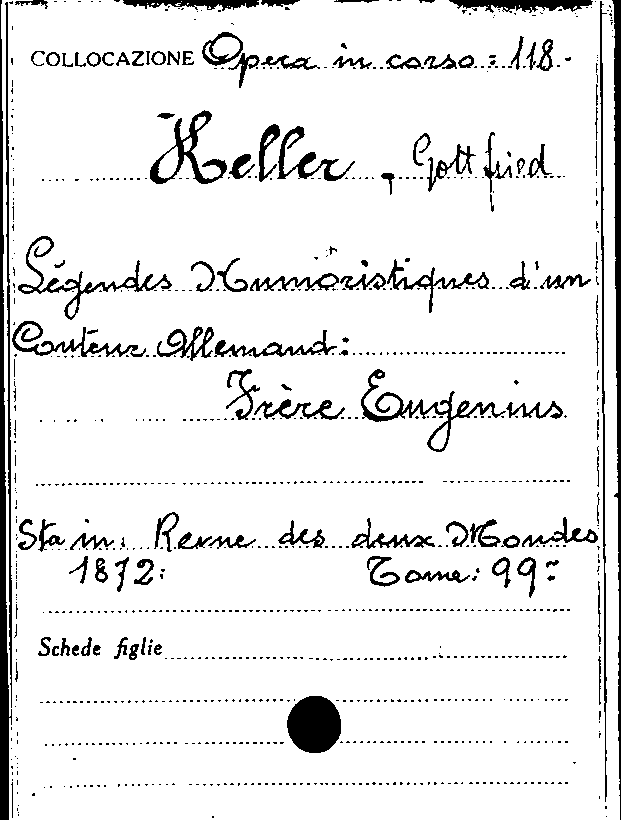 COLLOCAZIONE Opera in corso: 118.
Keller, Gottfried
Légendes Humoristiques d'un
Conteur Allemand:
Frère Eugenius
Sta in: Revue des deux Mondes
1872: Tome: 99:
Schede figlie